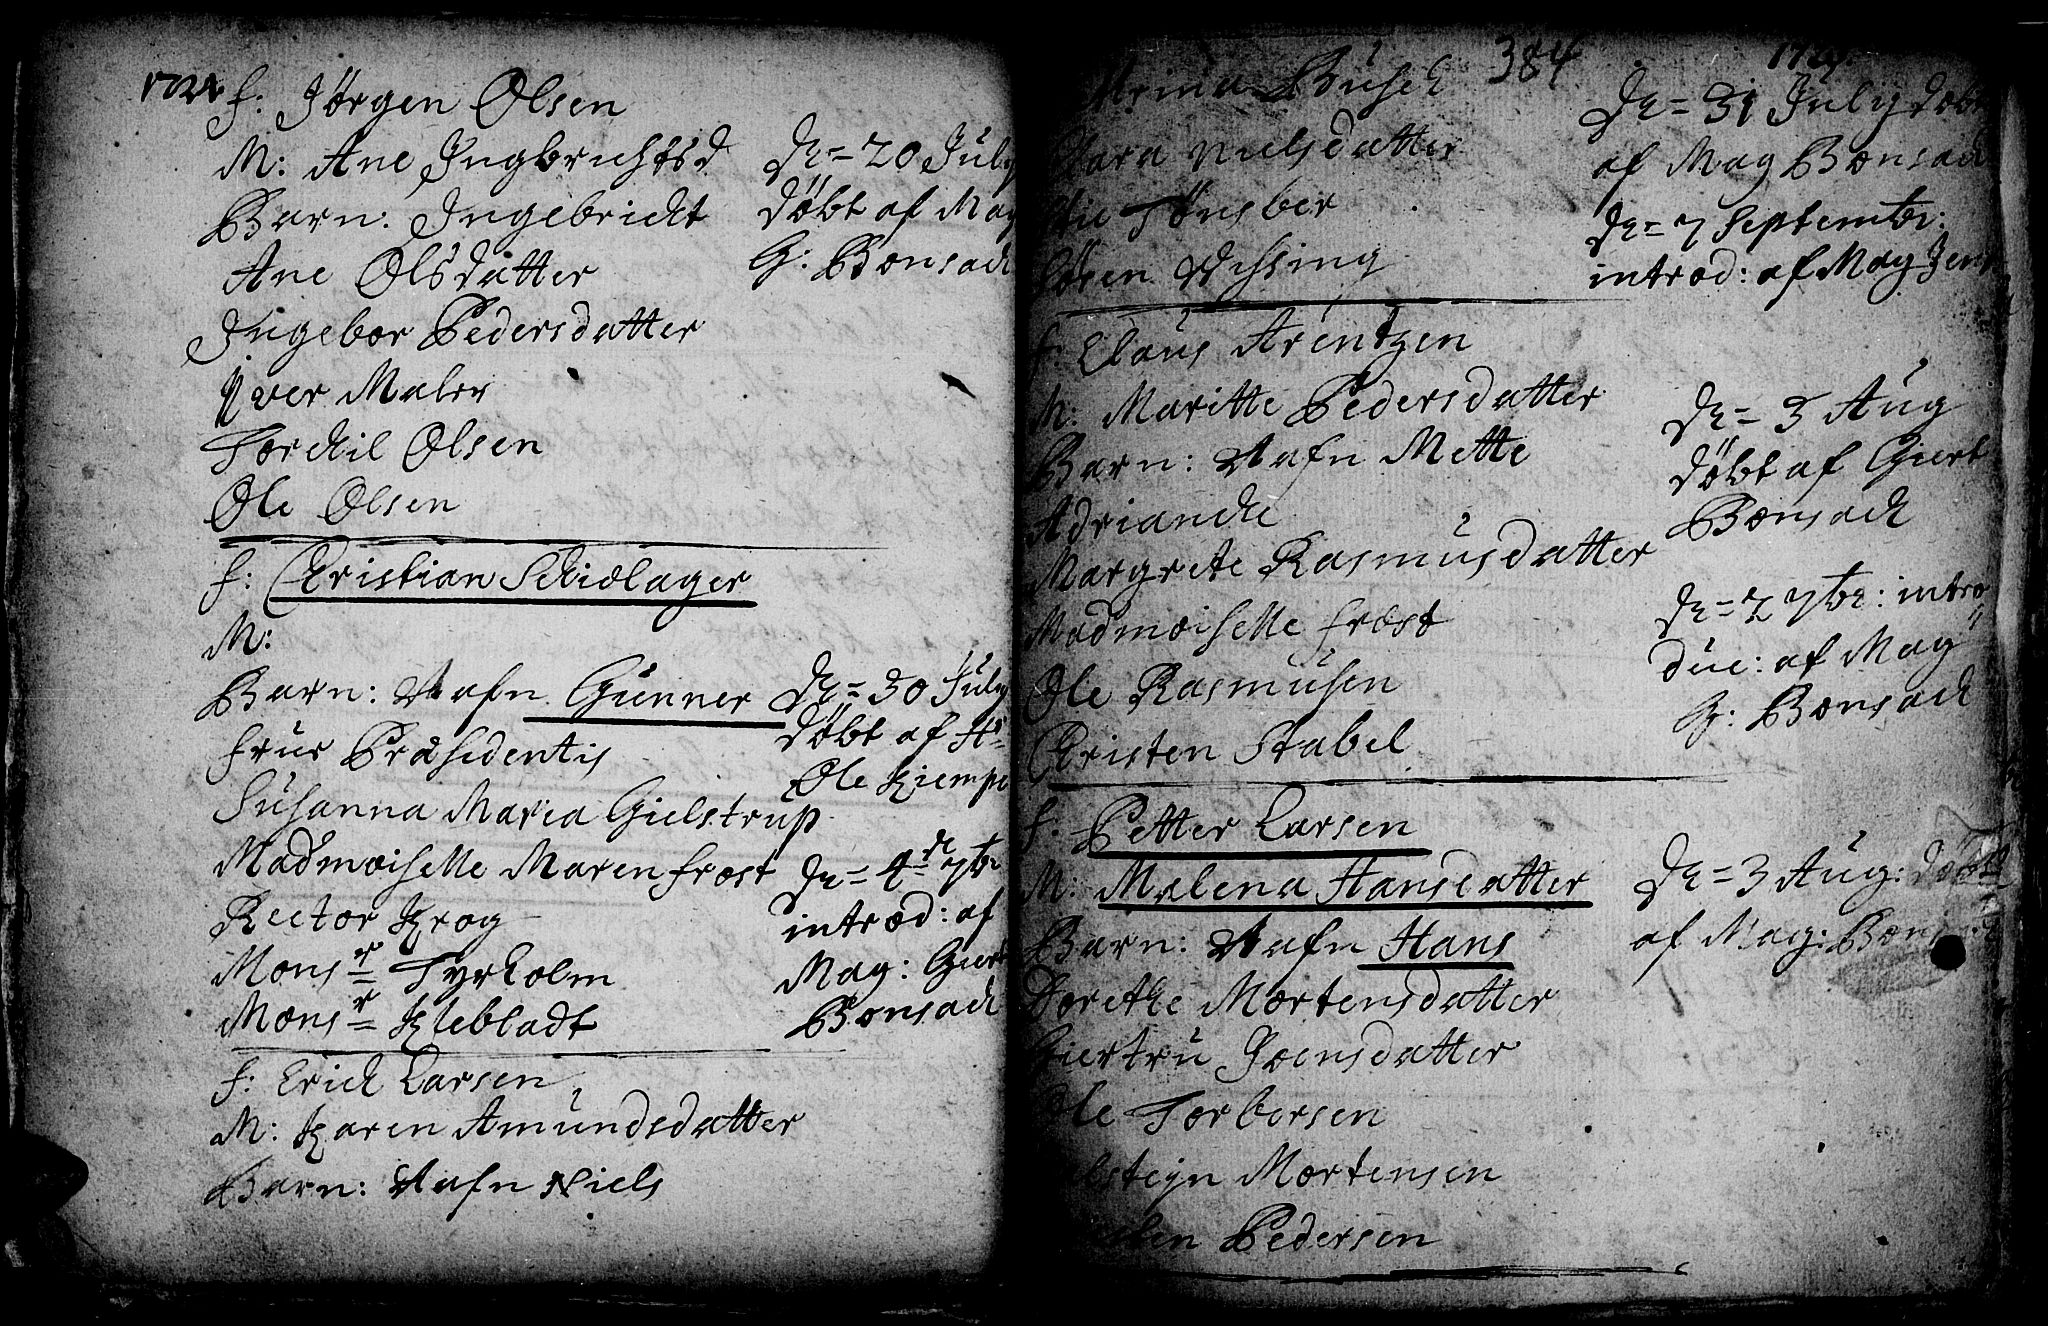 F: Jørgen Olsen
M: Ane Ingbrichtsd
Barn: Ingebricht
Ane Olsdatter
Ingebor Pedersdatter
Iver Maler
Torchil Olsen
Ole Olsen
D = 20 July
døbt af Mag
G: Bonsach
F: Christian Schiølager
M:
Barn: Nafn Gunner
Frue Præsidentis
Susanna Maria Gielstrup
Madmoiselle Maren Frost
Rector Krog
Monsr Tyrholm
Monsr Klebladt
D = 30 July
døbt af Hr
Ole Kiempe
D = 4de 7br
introd: af
Mag: Giert
Bonsach
F: Erich Larsen
M: Karen Amundsdatter
Barn: Nafn Niels
384
Busch
Nielsdatter
Tønsber
Søren Wissing
D = 31 July døbt
af Mag Bonsach
D = 7 Septembr:
introd: af Mag Jens
F: Claus Arentzen
M: Maritte Pedersdatter
Barn: Nafn Mette
Adrianche
Margrete Rasmusdatter
Madmoiselle Frost
Ole Rasmusen
Christen Stabel
D = 3 Aug
døbt af Giert
Bonsach
D = 2 7br: intro
duc: af Mag
G: Bonsach
F: Petter Larsen
M: Malena Hansdatter
Barn: Nafn Hans
Dorethe Mortensdatter
Giertru Joensdatter
Ole Torbersen
Mortensen
Pedersen
D = 3 Aug: døbt
af Mag: Bonsach